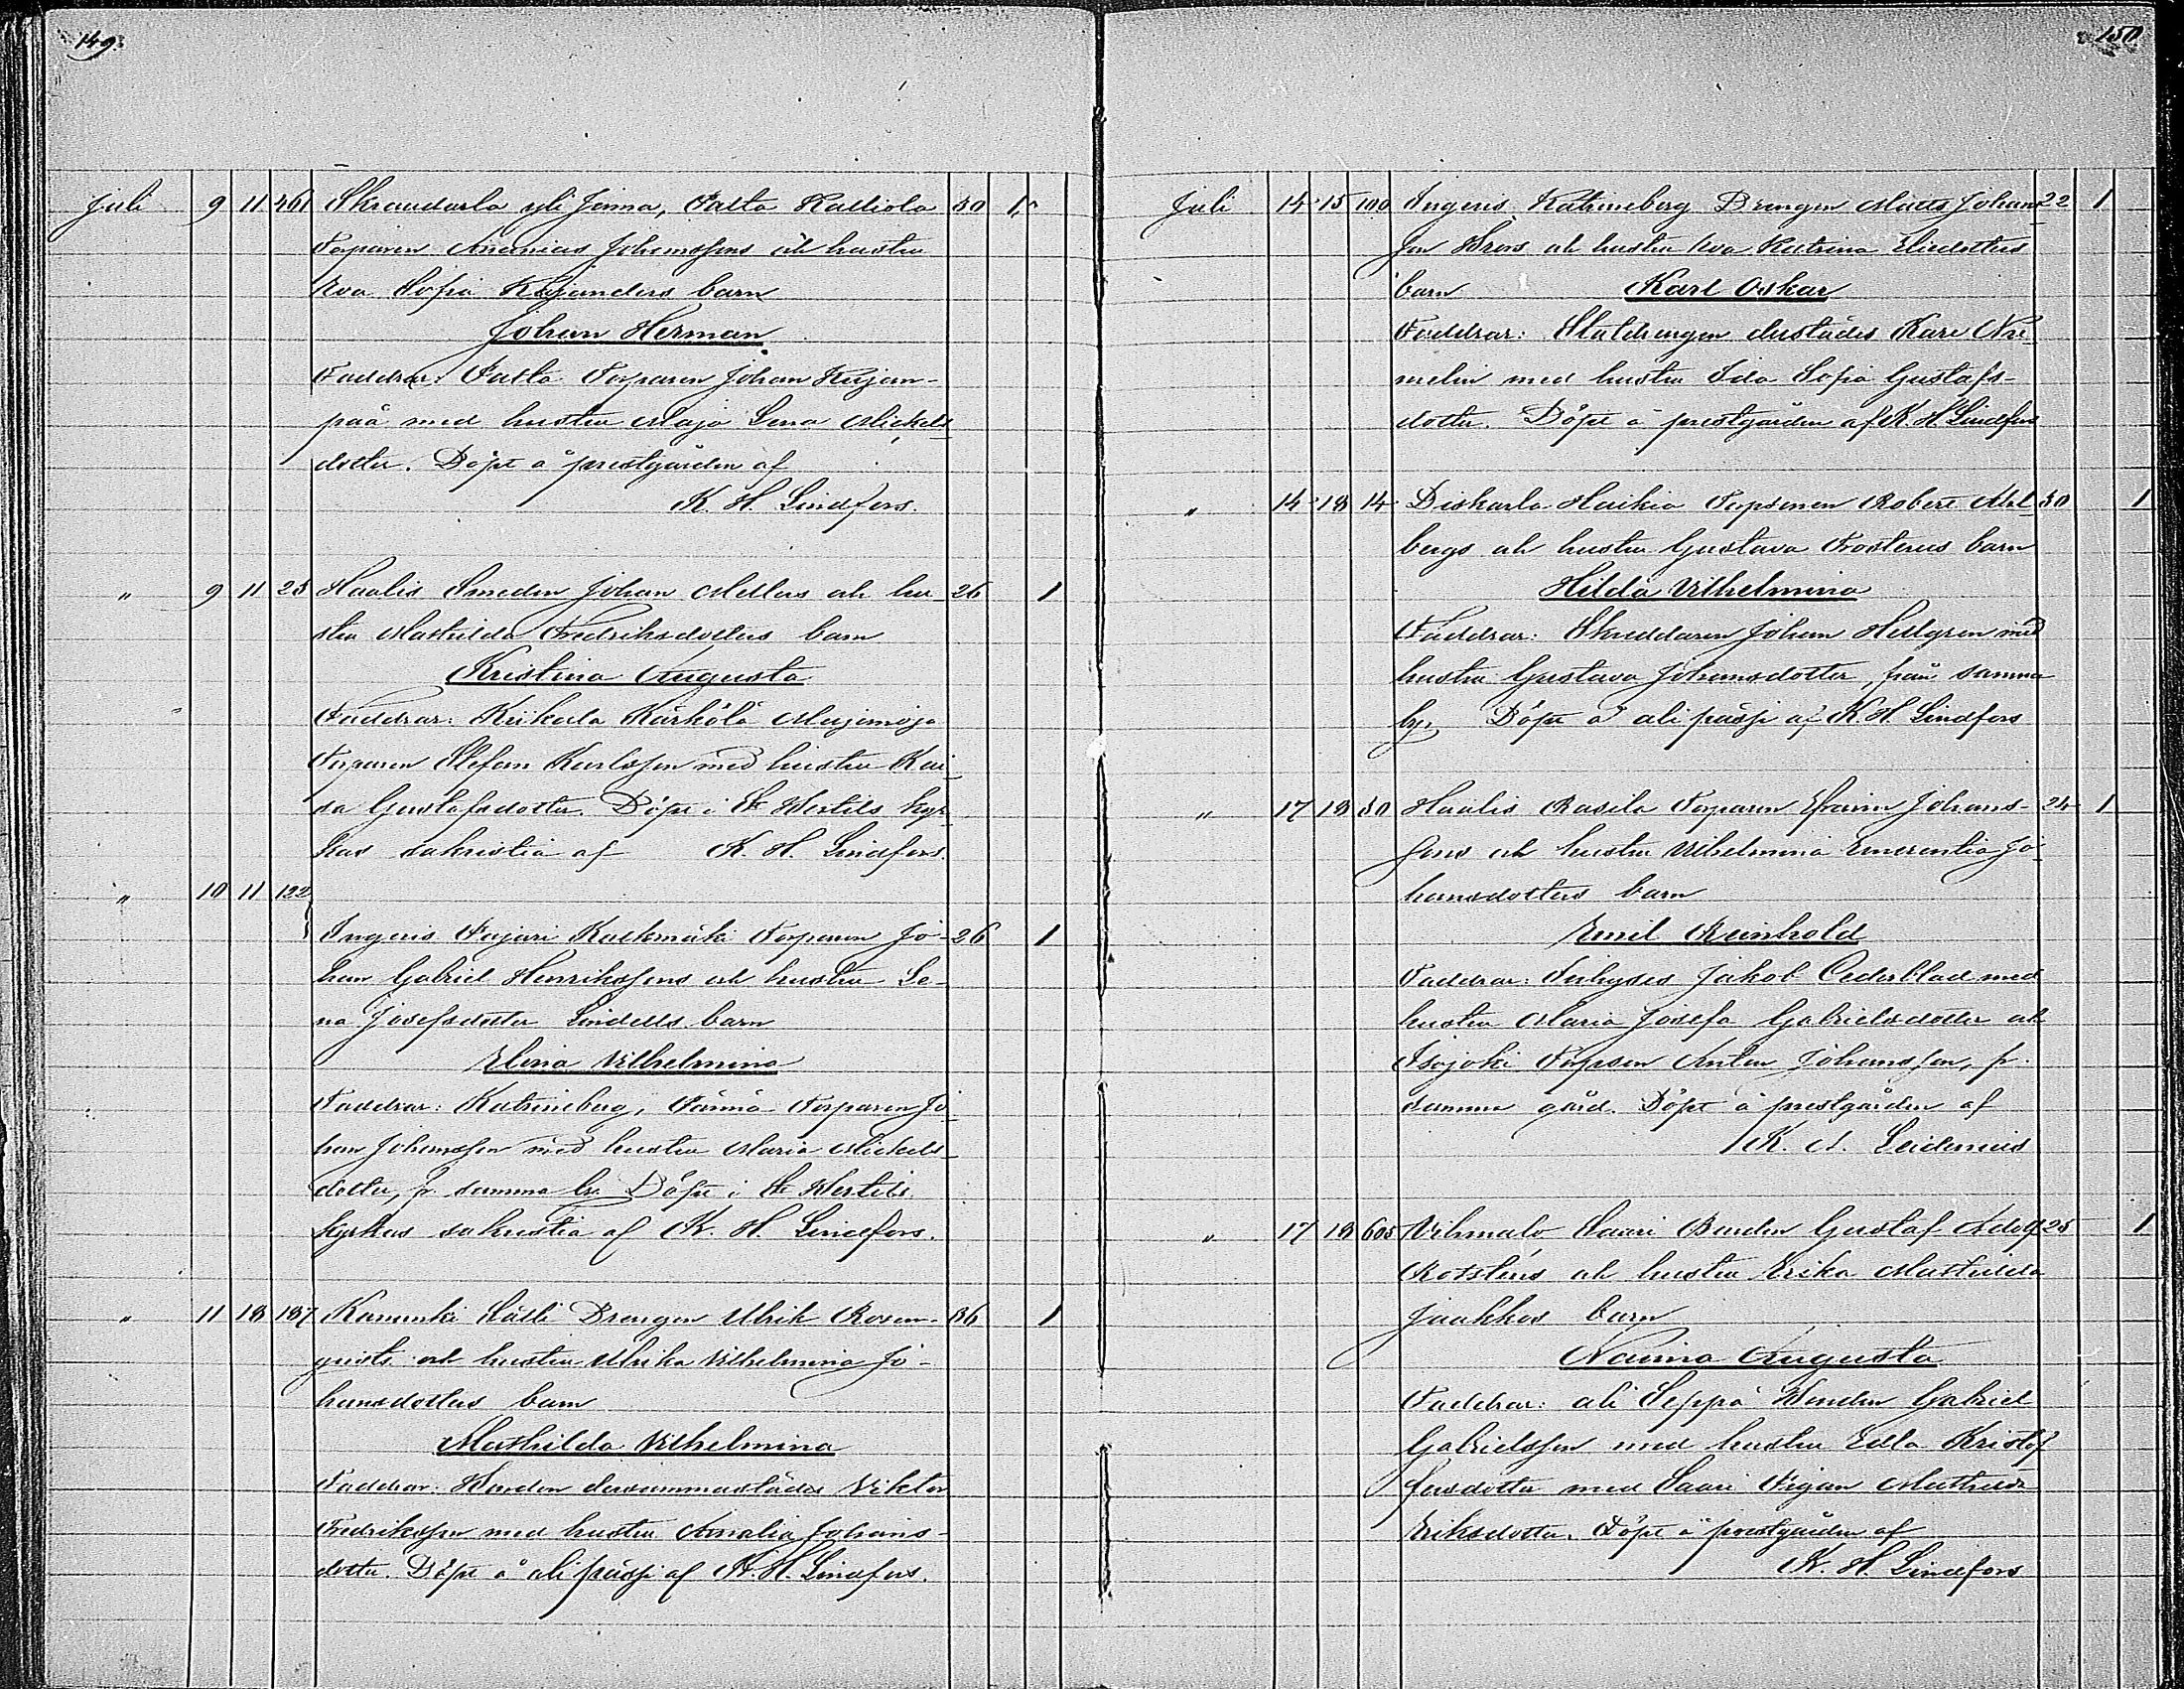 149.
Juli 9 11 461 Skraudarla yli Jinna, Talto Kalliola 30 1
Torparen Ananias Johanssons och hustru
Eva Sofia Kajanders barn
Johan Herman
Faddrar: Talto Torparen Johan Kujan-
pää med hustru Maja Lena Mickels
dotter. Döpt å prestgården af
K. H. Lindfors.
" 9 11 25 Haalis Smeden Johan Mellers och hu 26 1
stru Mathilda Fredriksdotters barn
Kristina Augusta
Faddrar: Kiikala Kärkölä
Torparen Stefan Karlsson med hustru Kai
sa Gustafsdotter. Döpt i St Bertils kyr
kas sakristia af K. H. Lindfors.
" 10 11 122
Ingeris Pajari Kuckmäki Torparen Jo- 26 1
han Gabriel Henrikssons och hustru Le-
na Josefsdotter Lindells barn
Elina Vilhelmina
Faddrar: Katrineberg, Torparen Jo
han Johansson med hustru Maria Mickels
dotter, fr samma by. Döpt i St Bertils
kyrkas sakristia af K. H. Lindfors.
" 11 13 137 Kanunki Sälli Drengen Ulrik Rosen- 36 1
qvists och hustru Ulrika Vilhelmina Jo-
hansdotters barn
Mathilda Vilhelmina
Faddrar: Bonden dersammastädes Viktor
Fredriksson med hustru Amalia Johans-
dotter. Döpt å ali pässi af K. H. Lindfors.
150
Juli 14 15 100 Ingeris Katrineberg Drengen Matts Johans 22 1
son och hustru Eva Katrina Eliedotters
barn Karl Oskar
Faddrar: Statdrengen dustädes Karl
melin med hustru Ida Sofia Gustafs-
dotter. Döpt å prestgården af K. H. Lindfors
" 14 18 14 Diskarla Haikia Torparen Robert Ahl 30 1
bergs och hustru Gustava Frosterus barn
Hilda Vilhelmina
Faddrar: Skreddaren Johan Hellgren med
hustru Gustava Johansdotter, från samma
by. Döpt å ali pässi af K. H. Lindfors
" 17 18 30 Haalis Rasila Torparen Efraim Johans- 24 1
sons och hustru Vilhelmina Emerentia Jo-
hansdotters barn
Emil Reinhold
Faddrar: Inhyses Jakob Cederblad med
hustru Maria Josefa Gabrielsdotter och
Isojoki Torpson Anton Johansson, fr.
samma gård. Döpt å prestgården af
K. A. Leidenius
" 17 18 605 Vihmalo Saari Bonden Gustaf Adolf 25 1
Rotsténs och hustru Erika Mathilda
Jaakkos barn
Naima Augusta
Faddrar: ali Seppä Bonden Gabriel
Gabrielsson med hustru Edla Kristof
fersdotter med Saari Pigan Mathilda
Eriksdotter. Döpt å prestgården af
K. H. Lindfors